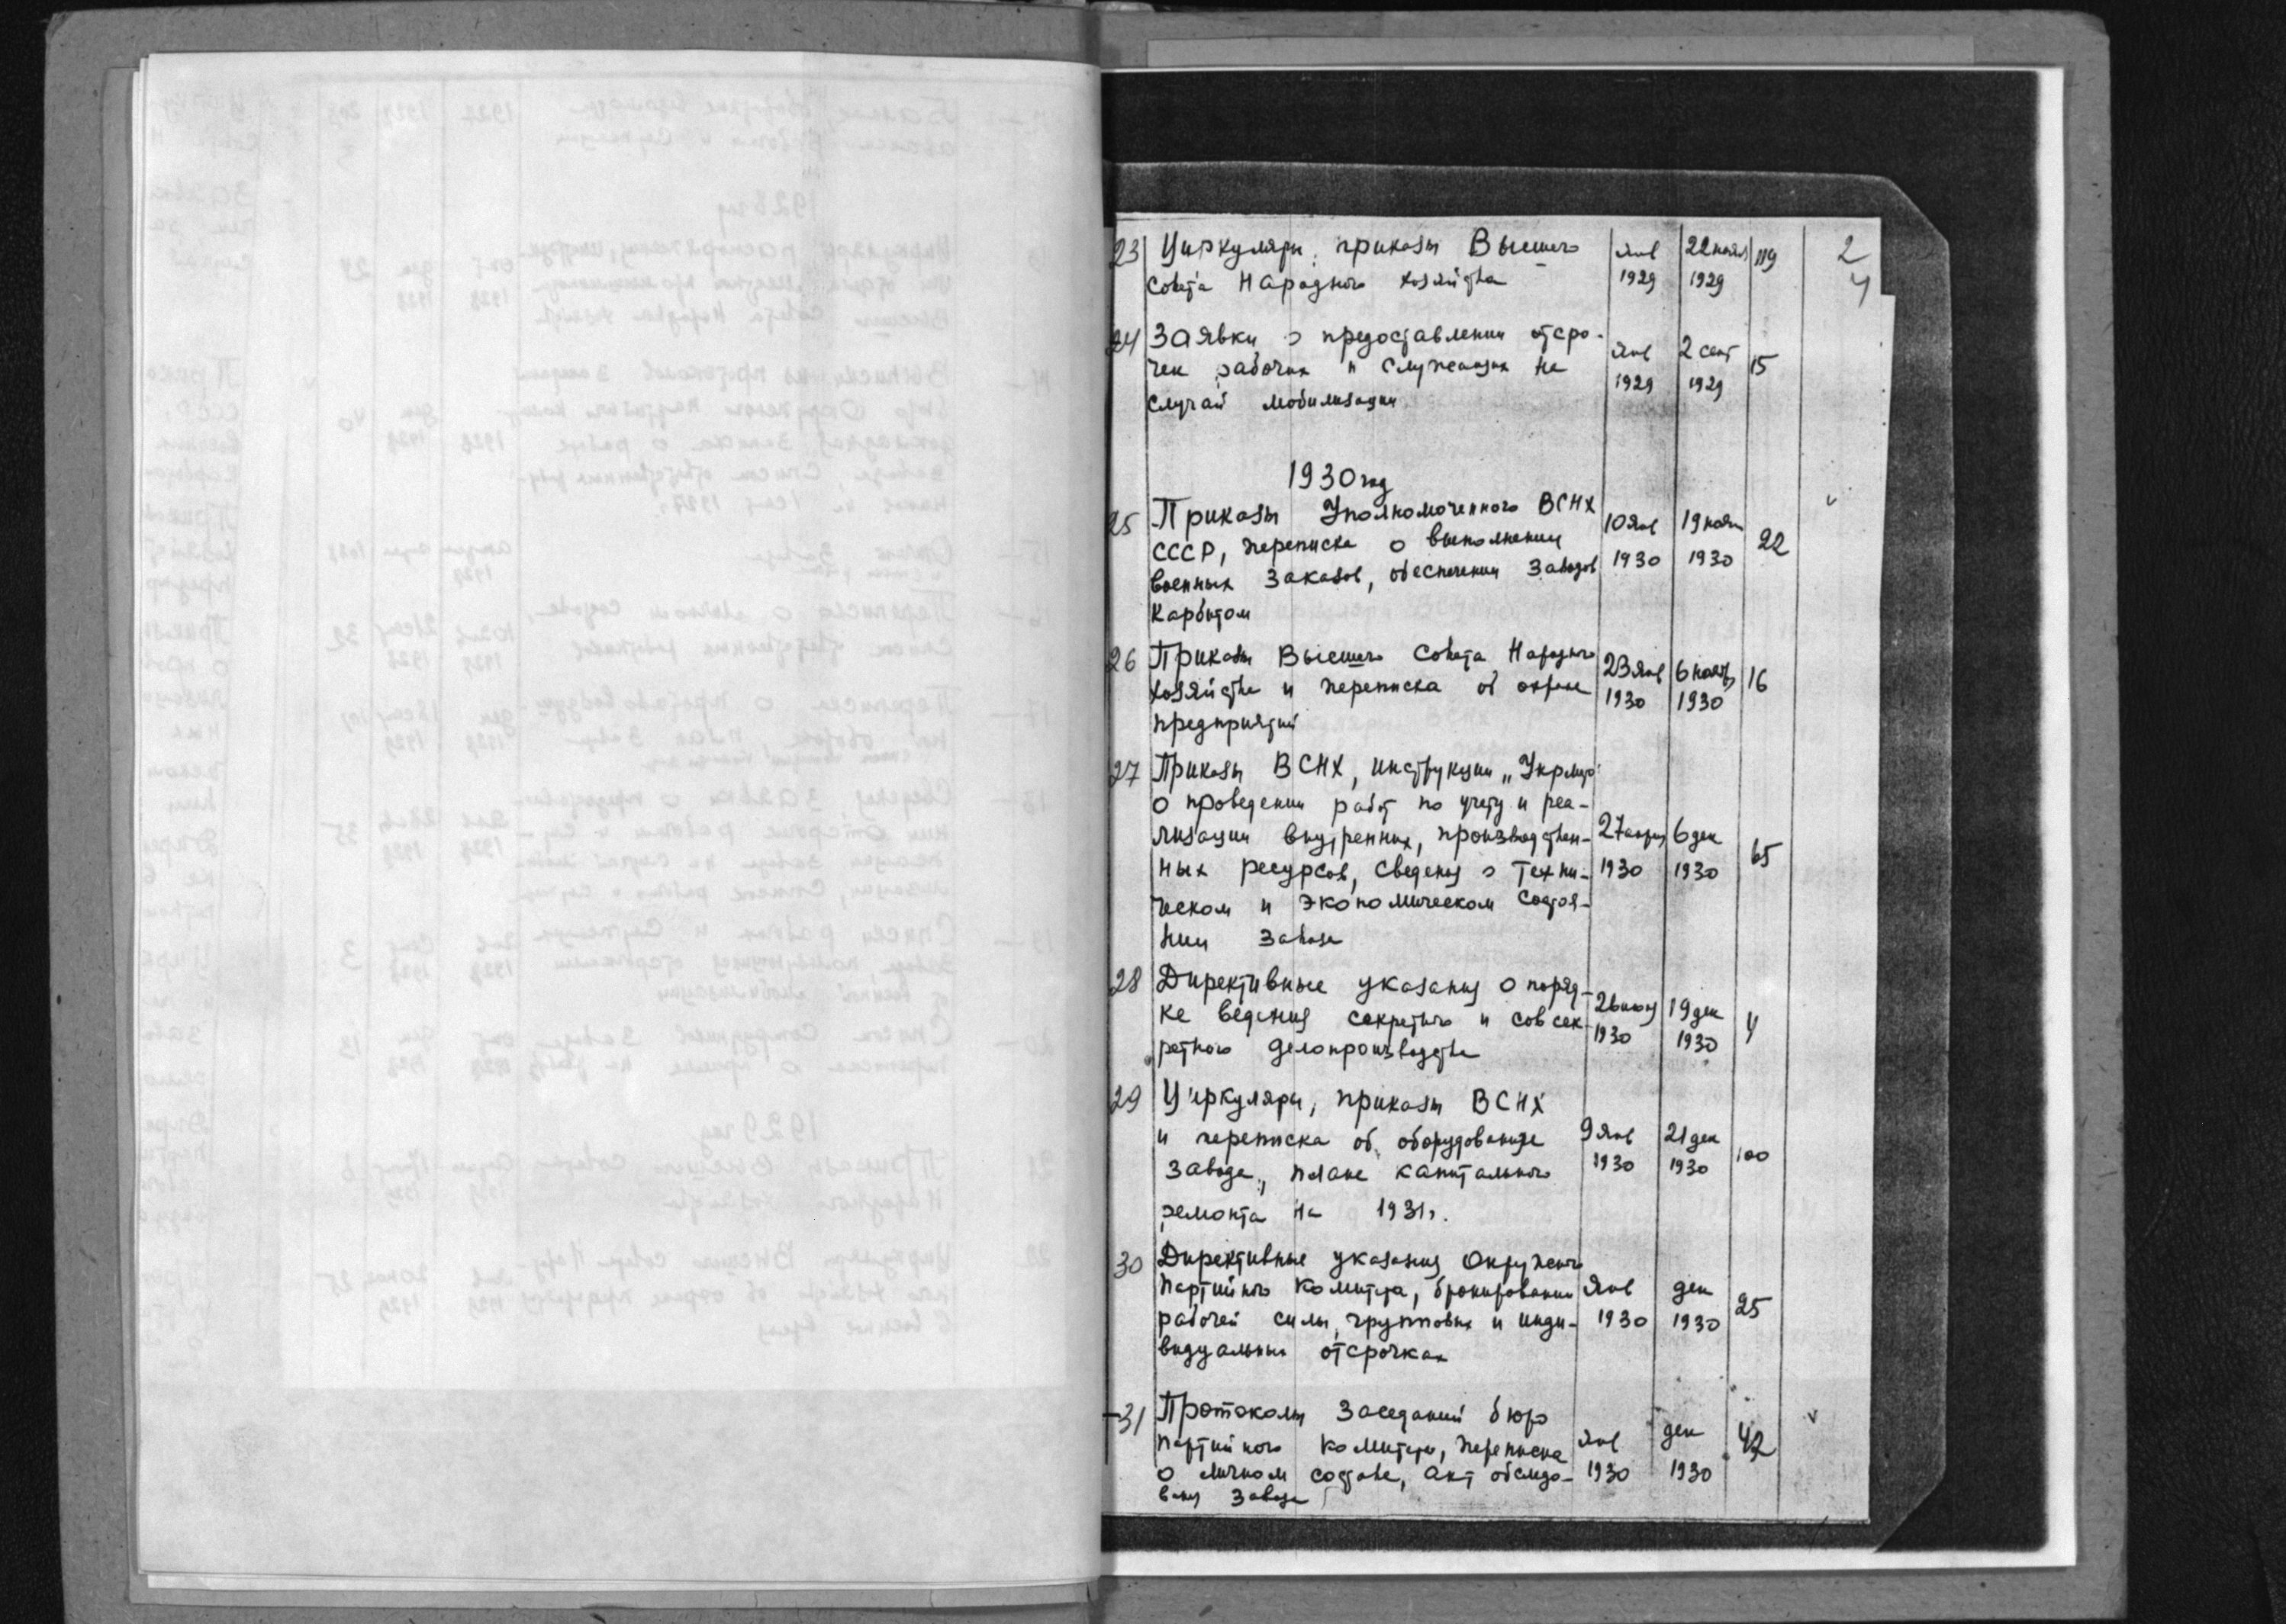 2
4
23 Циркуляры, приказы Высшего янв 22 нояб 119
Совета Народного хозяйства 1929 1929
24 Заявки о предоставлении отсро- янв 2 сент 15
чек рабочих и служащих на 1929 1929
случай мобилизации
1930 год
25 Приказы Уполномоченного ВСНХ 10 янв 19 нояб 22
СССР, переписка о выполнении 1930 1930
военных заказов, обеспечении заводов
карбитом
26 Приказы Высшего Совета Народного 23 янв 6 нояб 16
хозяйства и переписка об охране 1930 1930
предприятий
27 Приказы ВСНХ, инструкции
о проведении работ по учету и реа-
лизации внутренних, производствен- 27 6 дек 65
ных ресурсов, сведения о техни- 1930 1930
ческом и экономическом состоя-
нии завода
28 Директивные указания о поряд- 26 июня 19 дек 4
ке ведения секретного и сов сек- 1930 1930
ретного делопроизводства
29 Циркуляры, приказы ВСНХ
и переписка об оборудовании 9 янв 21 дек 100
завода, плане капитального 1930 1930
ремонта на 1931г.
30 Директивные указания Окружного
партийного комитета, бронировании янв дек 25
рабочей силы, групповых и инди- 1930 1930
видуальных отсрочках
31 Протоколы заседаний бюро
партийного комитета, переписка янв дек 42
о личном составе, акт обследо- 1930 1930
вания завода